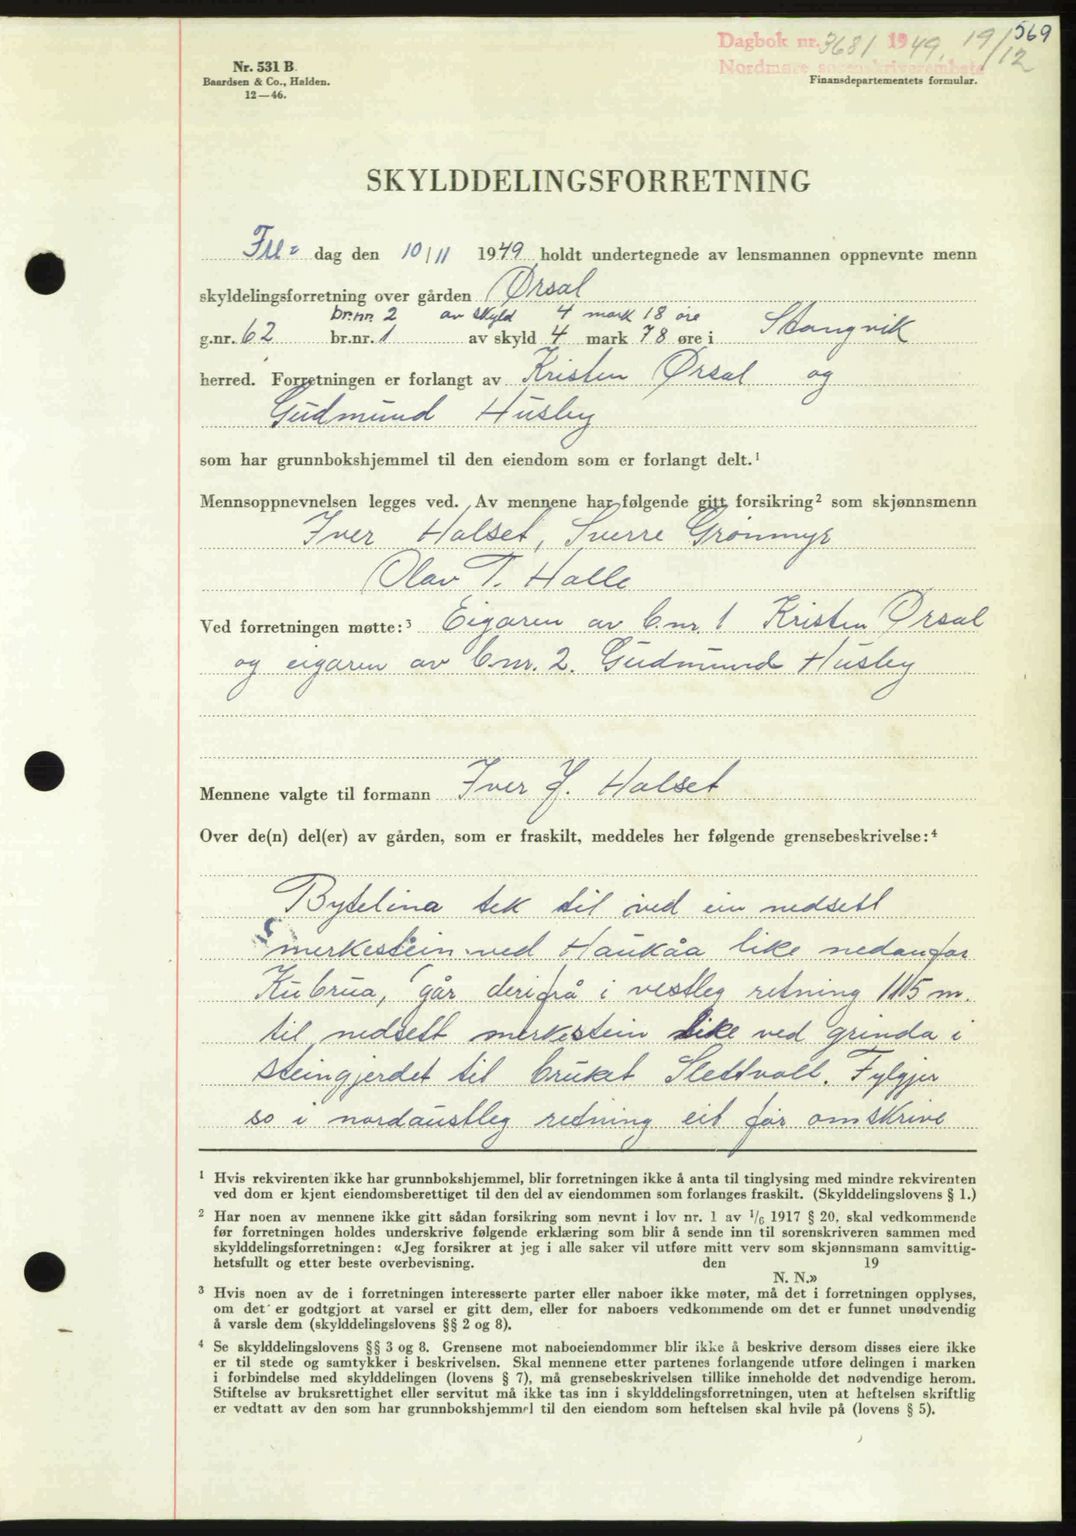 569
Dagbok nr. 3681 1949. 19/12
Nordmøre sorenskriverembete
Nr. 531 B.
Baardsen & Co., Halden.
12—46.
Finansdepartementets formular.
SKYLDDELINGSFORRETNING
Fre- dag den 10/11 1949 holdt undertegnede av lensmannen oppnevnte menn
skyldelingsforretning over gården Ørsal
br.nr. 2 av skyld 4 mark 18 øre
g.nr. 62 br.nr. 1 av skyld 4 mark 78 øre i Stangvik
herred. Forretningen er forlangt av Kristen Ørsal og
Gudmund Husby
som har grunnbokshjemmel til den eiendom som er forlangt delt.¹
Mennsoppnevnelsen legges ved. Av mennene har følgende gitt forsikring² som skjønnsmenn
Iver Halset, Sverre Grønmyr
Olav T. Halle
Ved forretningen møtte:³ Eigaren av b.nr. 1 Kristen Ørsal
og eigaren av b.nr. 2. Gudmund Husby
Mennene valgte til formann Iver J. Halset
Over de(n) del(er) av gården, som er fraskilt, meddeles her følgende grensebeskrivelse:⁴
Bytelina tek til ved ein nedsett
merkestein ved Haukåa like nedanfor
Kubrua, går derifrå i vestleg retning 115 m.
til nedsett merkestein like ved grinda i
steingjerdet til bruket Slettvoll. Fylgjer
so i nordaustleg retning eit før omskrive
¹ Hvis rekvirenten ikke har grunnbokshjemmel, blir forretningen ikke å anta til tinglysing med mindre rekvirenten
ved dom er kjent eiendomsberettiget til den del av eiendommen som forlanges fraskilt. (Skylddelingslovens § 1.)
² Har noen av mennene ikke gitt sådan forsikring som nevnt i lov nr. 1 av ¹/₆ 1917 § 20, skal vedkommende
før forretningen holdes underskrive følgende erklæring som blir å sende inn til sorenskriveren sammen med
skylddelingsforretningen: «Jeg forsikrer at jeg i alle saker vil utføre mitt verv som skjønnsmann samvittig-
hetsfullt og etter beste overbevisning. den 19
N. N.»
³ Hvis noen av de i forretningen interesserte parter eller naboer ikke møter, må det i forretningen opplyses,
om det er godtgjort at varsel er gitt dem, eller for naboers vedkommende om det er funnet unødvendig
å varsle dem (skylddelingslovens §§ 2 og 8).
⁴ Se skylddelingslovens §§ 3 og 8. Grensene mot naboeiendommer blir ikke å beskrive dersom disses eiere ikke
er til stede og samtykker i beskrivelsen. Skal mennene etter partenes forlangende utføre delingen i marken
i forbindelse med skylddelingen (lovens § 7), må grensebeskrivelsen tillike inneholde det nødvendige herom.
Stiftelse av bruksrettighet eller servitut må ikke tas inn i skylddelingsforretningen, uten at heftelsen skriftlig
er vedtatt av den som har grunnbokshjemmel til den eiendom som heftelsen skal hvile på (lovens § 5).